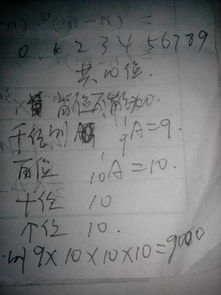 0 1 2 3 4 5 6 7 8 9
共10位.
首位不能为0.
千位则 ¹₉A=9.
百位 ¹₁₀A=10.
十位 10
个位 10.
则 9×10×10×10=9000